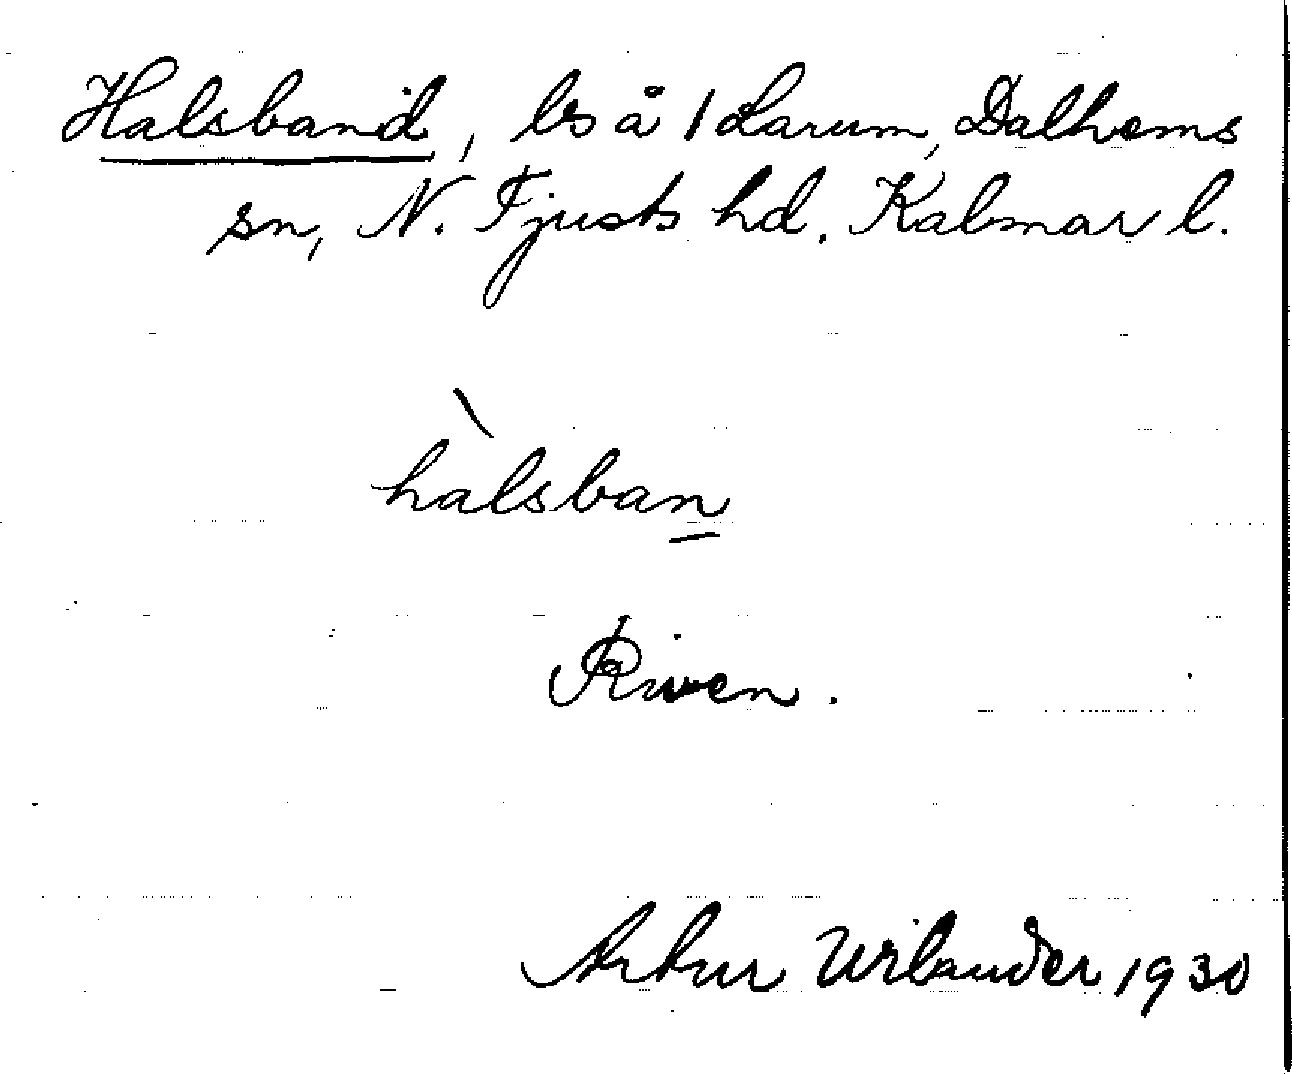 Halsband, ls å 1 Larum, Dalhems
sn, N. Tjusts hd. Kalmar l.
hàlsban
Riven.
Artur Wilander 1930